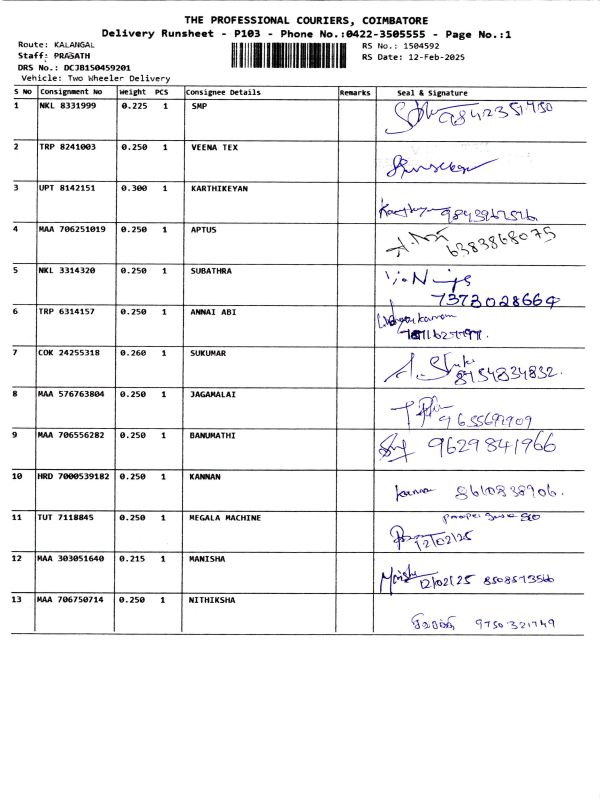 THE PROFESSIONAL COURIERS, COIMBATORE
Delivery Runsheet - P103 - Phone No.:0422-3505555 - Page No.:1
Route: KALANGAL RS No.: 1504592
Staff: PRASATH RS Date: 12-Feb-2025
DRS No.: DCJB150459201
Vehicle: Two Wheeler Delivery
S NO Consignment No Weight PCS Consignee Details Remarks Seal & Signature
1 NKL 8331999 0.225 1 SMP
9842351450
2 TRP 8241003 0.250 1 VEENA TEX
3 UPT 8142151 0.300 1 KARTHIKEYAN
4 MAA 706251019 0.250 1 APTUS
6383868075
5 NKL 3314320 0.250 1 SUBATHRA
7373028664
6 TRP 6314157 0.250 1 ANNAI ABI
7 COK 24255318 0.260 1 SUKUMAR
8754834832.
8 MAA 576763804 0.250 1 JAGAMALAI
9655692909
9 MAA 706556282 0.250 1 BANUMATHI
9629841966
10 HRD 7000539182 0.250 1 KANNAN
8610838906.
11 TUT 7118845 0.250 1 MEGALA MACHINE
12/02/25
12 MAA 303051640 0.215 1 MANISHA
Manisha 12/02/25 8508573566
13 MAA 706750714 0.250 1 NITHIKSHA
9750321749